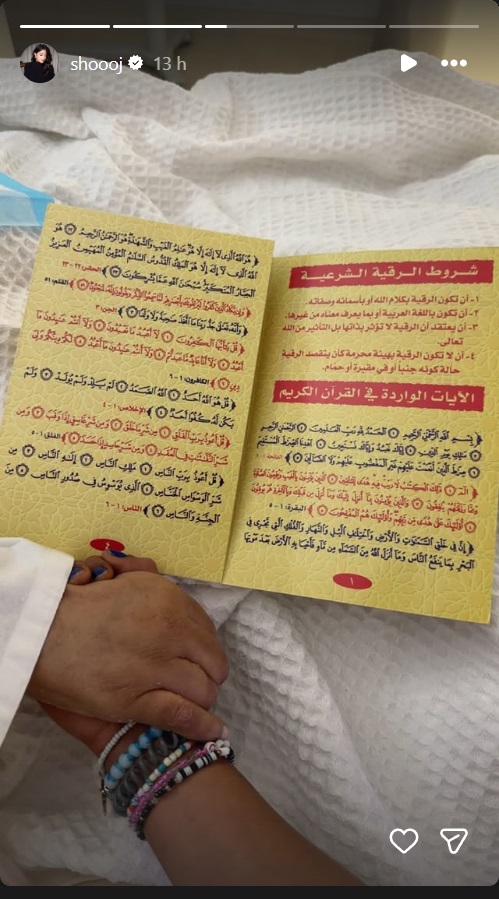 shoooj 13 h
شروط الرقية الشرعية
١- أن تكون الرقية بكلام الله أو بأسمائه وصفاته.
٢- أن تكون باللغة العربية أو بما يعرف معناه من غيرها.
٣- أن يعتقد أن الرقية لا تؤثر بذاتها بل التأثير من الله
تعالى.
٤- أن لا تكون الرقية بهيئة محرمة كأن يتقصد الرقية
حالة كونه جنباً أو في مقبرة أو حمام.
الآيات الواردة في القرآن الكريم
﴿ بسم الله الرحمن الرحيم ١ الحمد لله رب العالمين ٢ الرحمن الرحيم
٣ مالك يوم الدين ٤ إياك نعبد وإياك نستعين ٥ اهدنا الصراط المستقيم
٦ صراط الذين أنعمت عليهم غير المغضوب عليهم ولا الضالين ٧ ﴾
﴿ الم ١ ذلك الكتاب لا ريب فيه هدى للمتقين ٢ الذين يؤمنون بالغيب ويقيمون الصلاة
ومما رزقناهم ينفقون ٣ والذين يؤمنون بما أنزل إليك وما أنزل من قبلك وبالآخرة هم يوقنون
٤ أولئك على هدى من ربهم وأولئك هم المفلحون ٥ ﴾ البقرة: ١ - ٥
﴿ إن في خلق السموات والأرض واختلاف الليل والنهار والفلك التي تجري في
البحر بما ينفع الناس وما أنزل الله من السماء من ماء فأحيا به الأرض بعد موتها
١
﴿ هو الله الذي لا إله إلا هو عالم الغيب والشهادة هو الرحمن الرحيم ٢٢ هو
الله الذي لا إله إلا هو الملك القدوس السلام المؤمن المهيمن العزيز
الجبار المتكبر سبحان الله عما يشركون ٢٣ ﴾ الحشر: ٢٢ - ٢٣
القلم: ٥١
﴿ وأنه تعالى جد ربنا ما اتخذ صاحبة ولا ولدا ٣ ﴾ الجن: ٣
﴿ قل يا أيها الكافرون ١ لا أعبد ما تعبدون ٢ ولا أنتم عابدون ما
أعبد ٣ ولا أنا عابد ما عبدتم ٤ ولا أنتم عابدون ما أعبد ٥ لكم دينكم ولي
دين ٦ ﴾ الكافرون: ١ - ٦
﴿ قل هو الله أحد ١ الله الصمد ٢ لم يلد ولم يولد ٣ ولم
يكن له كفوا أحد ٤ ﴾ الإخلاص: ١ - ٤
﴿ قل أعوذ برب الفلق ١ من شر ما خلق ٢ ومن شر غاسق إذا وقب ٣ ومن
شر النفاثات في العقد ٤ ومن شر حاسد إذا حسد ٥ ﴾ الفلق: ١ - ٥
﴿ قل أعوذ برب الناس ١ ملك الناس ٢ إله الناس ٣ من
شر الوسواس الخناس ٤ الذي يوسوس في صدور الناس ٥ من
الجنة والناس ٦ ﴾ الناس: ١ - ٦